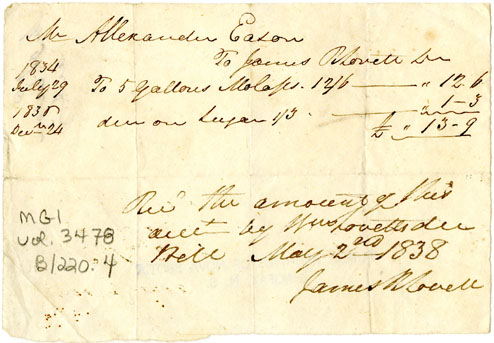 Mr Allexander Eason
To James R Lovett Dr
1834
July 29 To 5 Gallons Molass. 12/6 — " 12.6
1835
Decr 24 due on Sugar 1/3 — " 1-3
£ " 13-9
Recd the amount of this
acct by Wm Lovetts due
Bill May 2nd 1838
James R Lovett
MG1
Vol. 3478
B/220.4